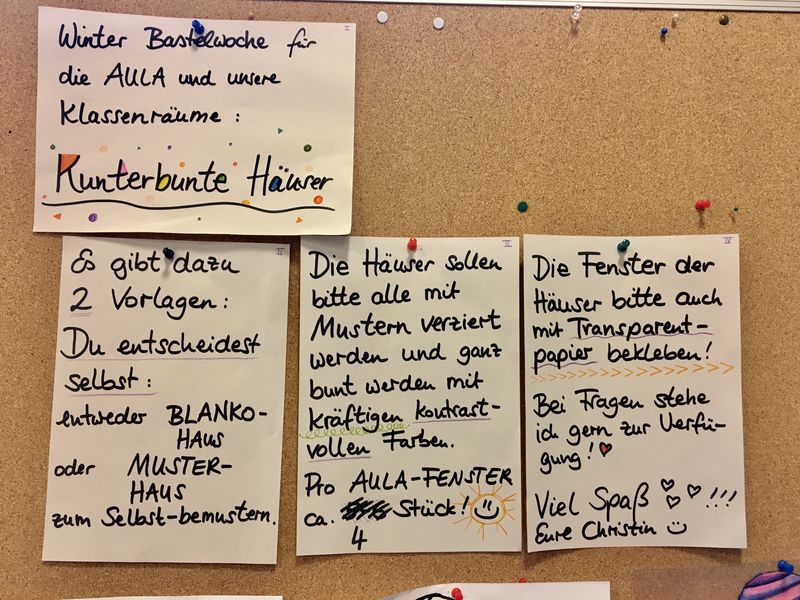 I
Winter Bastelwoche für
die AULA und unsere
Klassenräume :
Kunterbunte Häuser
II
Es gibt dazu
2 Vorlagen :
Du entscheidest
selbst :
entweder BLANKO-
HAUS
oder MUSTER-
HAUS
zum Selbst-bemustern.
III
Die Häuser sollen
bitte alle mit
Mustern verziert
werden und ganz
bunt werden mit
kräftigen kontrast-
vollen Farben.
Pro AULA-FENSTER
ca. Stück!
4
IV
Die Fenster der
Häuser bitte auch
mit Transparent-
papier bekleben!
Bei Fragen stehe
ich gern zur Verfü-
gung!
Viel Spaß !!!
Eure Christin